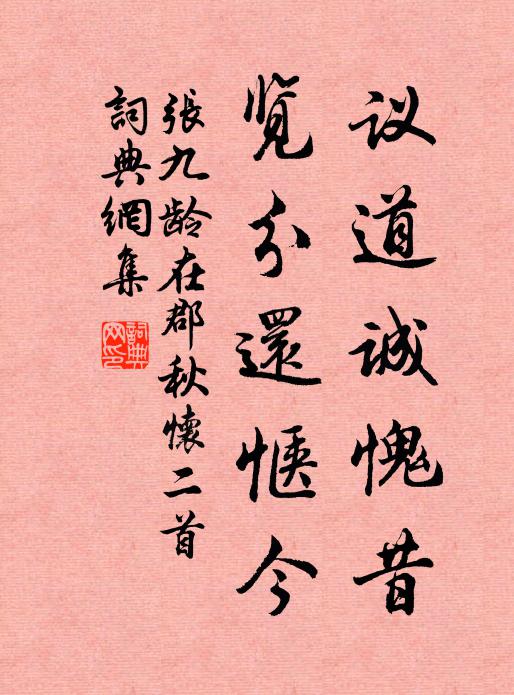 议道诚愧昔
览分還惬今
張九龄在郡秋懷二首
詞典網集
詞典网印